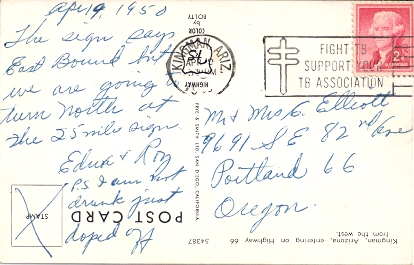 Apr 9, 1950
The sign says
East Bound but
we are going
turn North at
the 25 mile sign.
Edna & Roy
P.S I am not
drunk just
doped off
KINGMAN, ARIZ
FIGHT TB
SUPPORT YOUR
TB ASSOCIATION
2¢
Mr & Mrs E. Elliott
9691 S E 82nd Ave
Portland 66
Oregon.
POST CARD
STAMP
54387
Kingman, Arizona, entering on Highway 66
from the west.
COLOR
by
HIGHWAY